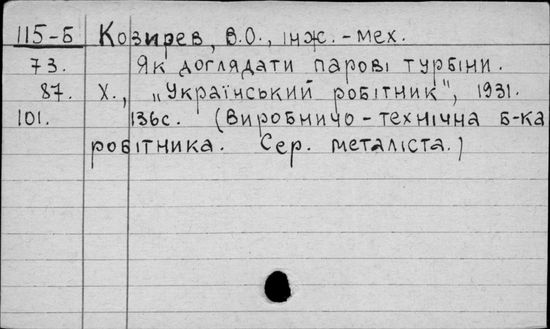 115-Б Козирев, В.О., інж.-мех.
73. Як доглядати парові турбіни.
87. Х., „Український робітник", 1931.
101. 136с. (Виробничо-технічна б-ка
робітника. Сер. металіста.)